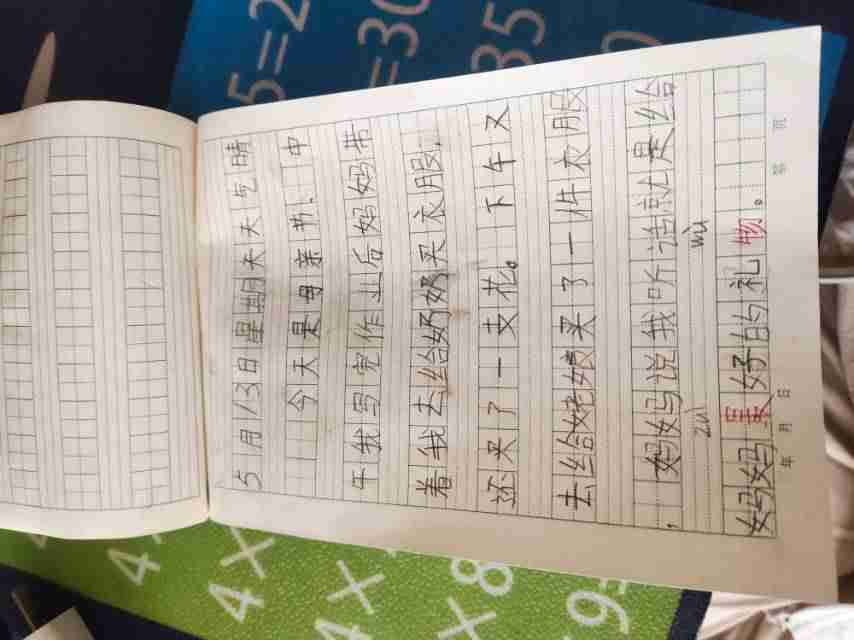 5月13日星期天天气晴
今天是母亲节,中
午我写完作业后妈妈带
着我去给奶奶买衣服,
还买了一支花。下午又
去给姥娘买了一件衣服
,妈妈说我听话就是给
zuì wù
妈妈最好的礼物。
年 月 日
5=2
=30
35
4×
4×
4×
×8